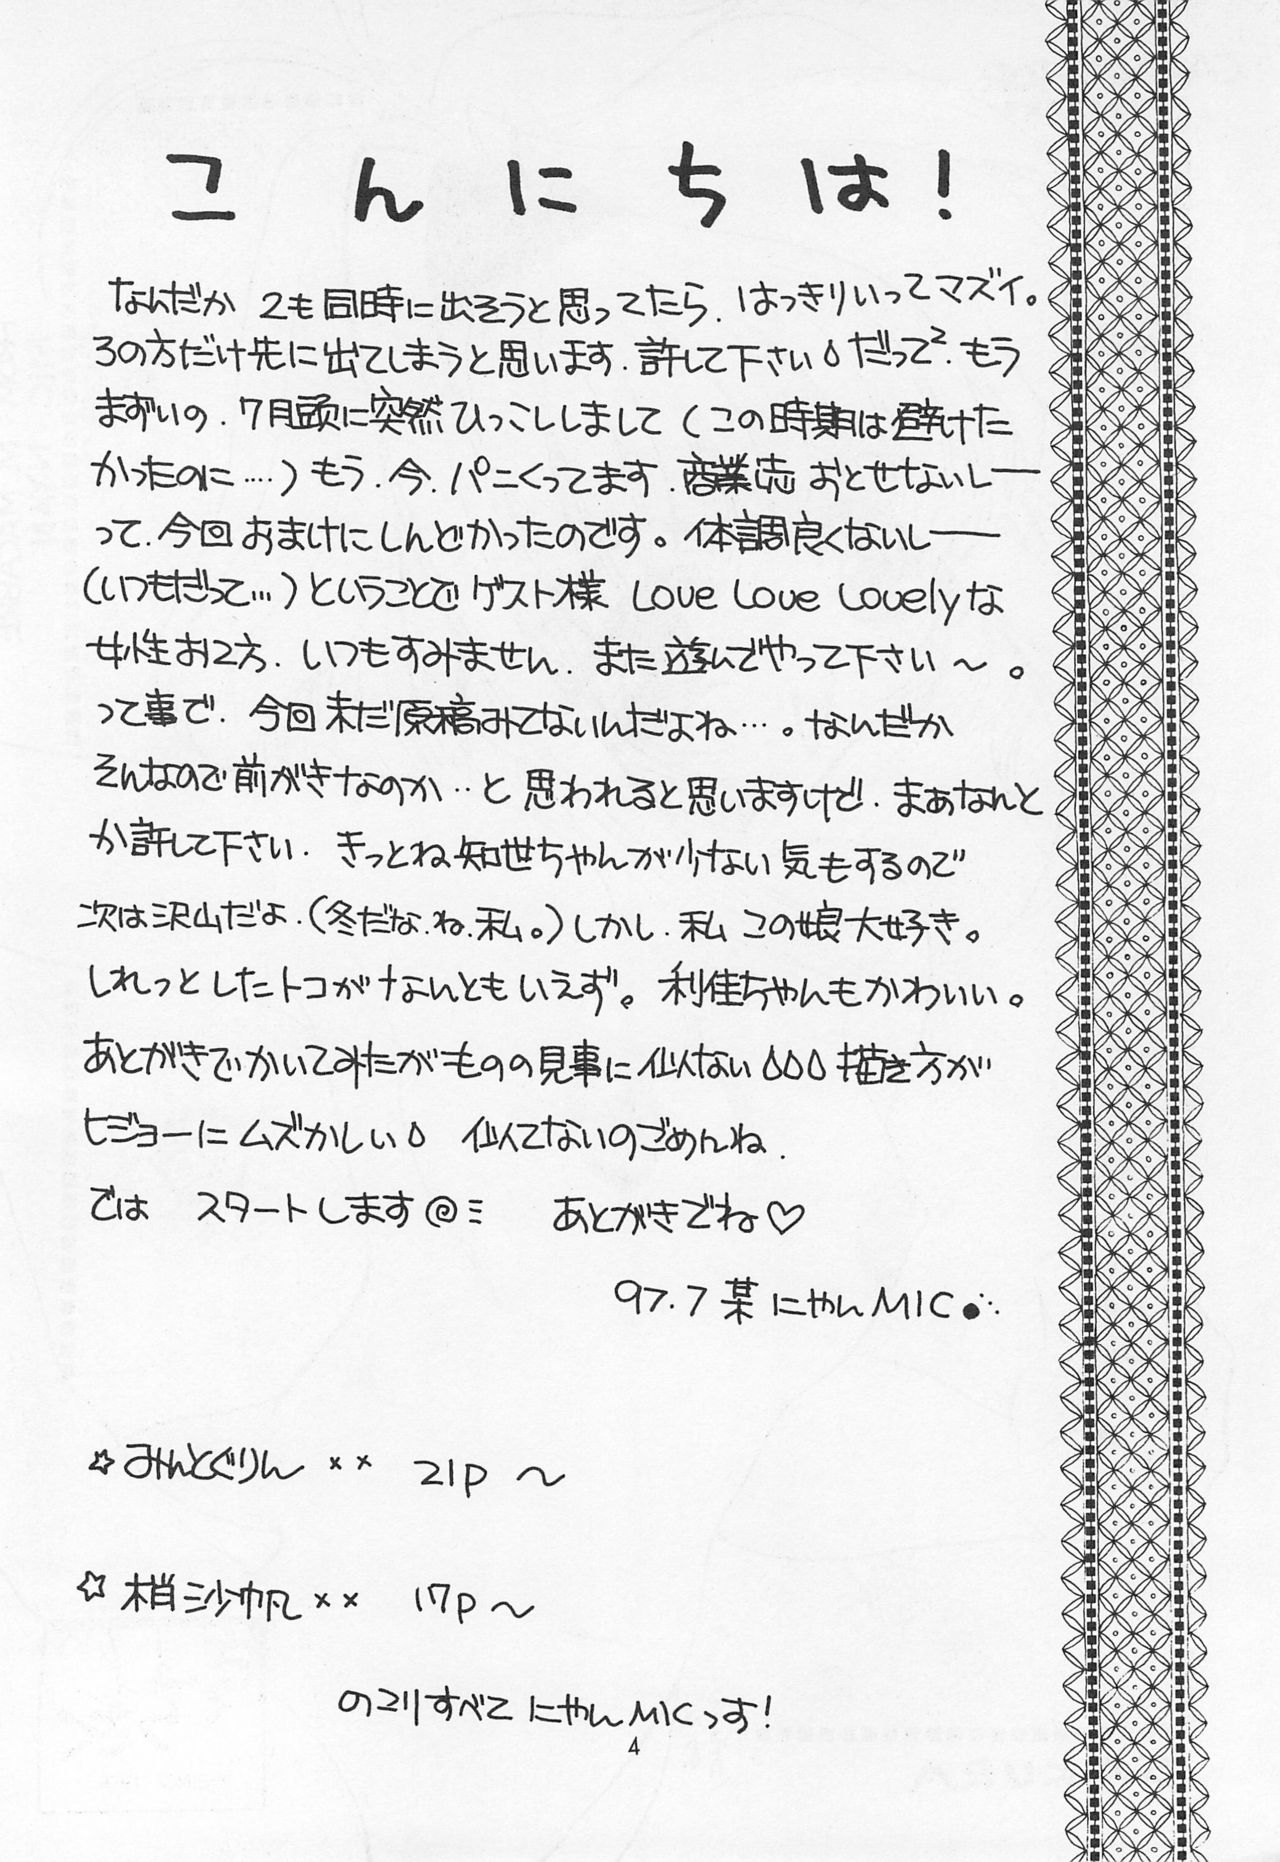 こんにちは!
なんだか 2も同時に出そうと思ってたら、はっきりいってマズイ。
3の方だけ先に出てしまうと思います、許して下さい だって²、もう
まずいの、7月頭に突然ひっこししまして(この時期は避けた
かったのに…)もう、今、パニくってます、商業誌おとせないしー
って、今回おまけにしんどかったのです。体調良くないしー
(いつもだって…)ということでゲスト様 Love Love Lovelyな
女性お2方、いつもすみません、また遊んでやって下さい〜。
って事で、今回未だ原稿みてないんだよね…。なんだか
そんなので前がきなのか‥と思われると思いますけど、まぁなんと
か許して下さい、きっとね知世ちゃんが少ない気もするので
次は沢山だよ、(冬だな、ね、私。)しかし、私この娘大好き。
しれっとしたトコがなんともいえず。利佳ちゃんもかわいい。
あとがきでかいてみたがものの見事に似ない 描き方が
ヒジョーにムズかしい 似てないのごめんね、
では スタートします@ミ あとがきでね♡
97.7 某にゃんMIC
☆みんとぐりん×× 21p〜
☆梢沙帆×× 17p〜
のこりすべてにゃんMICっす!
4